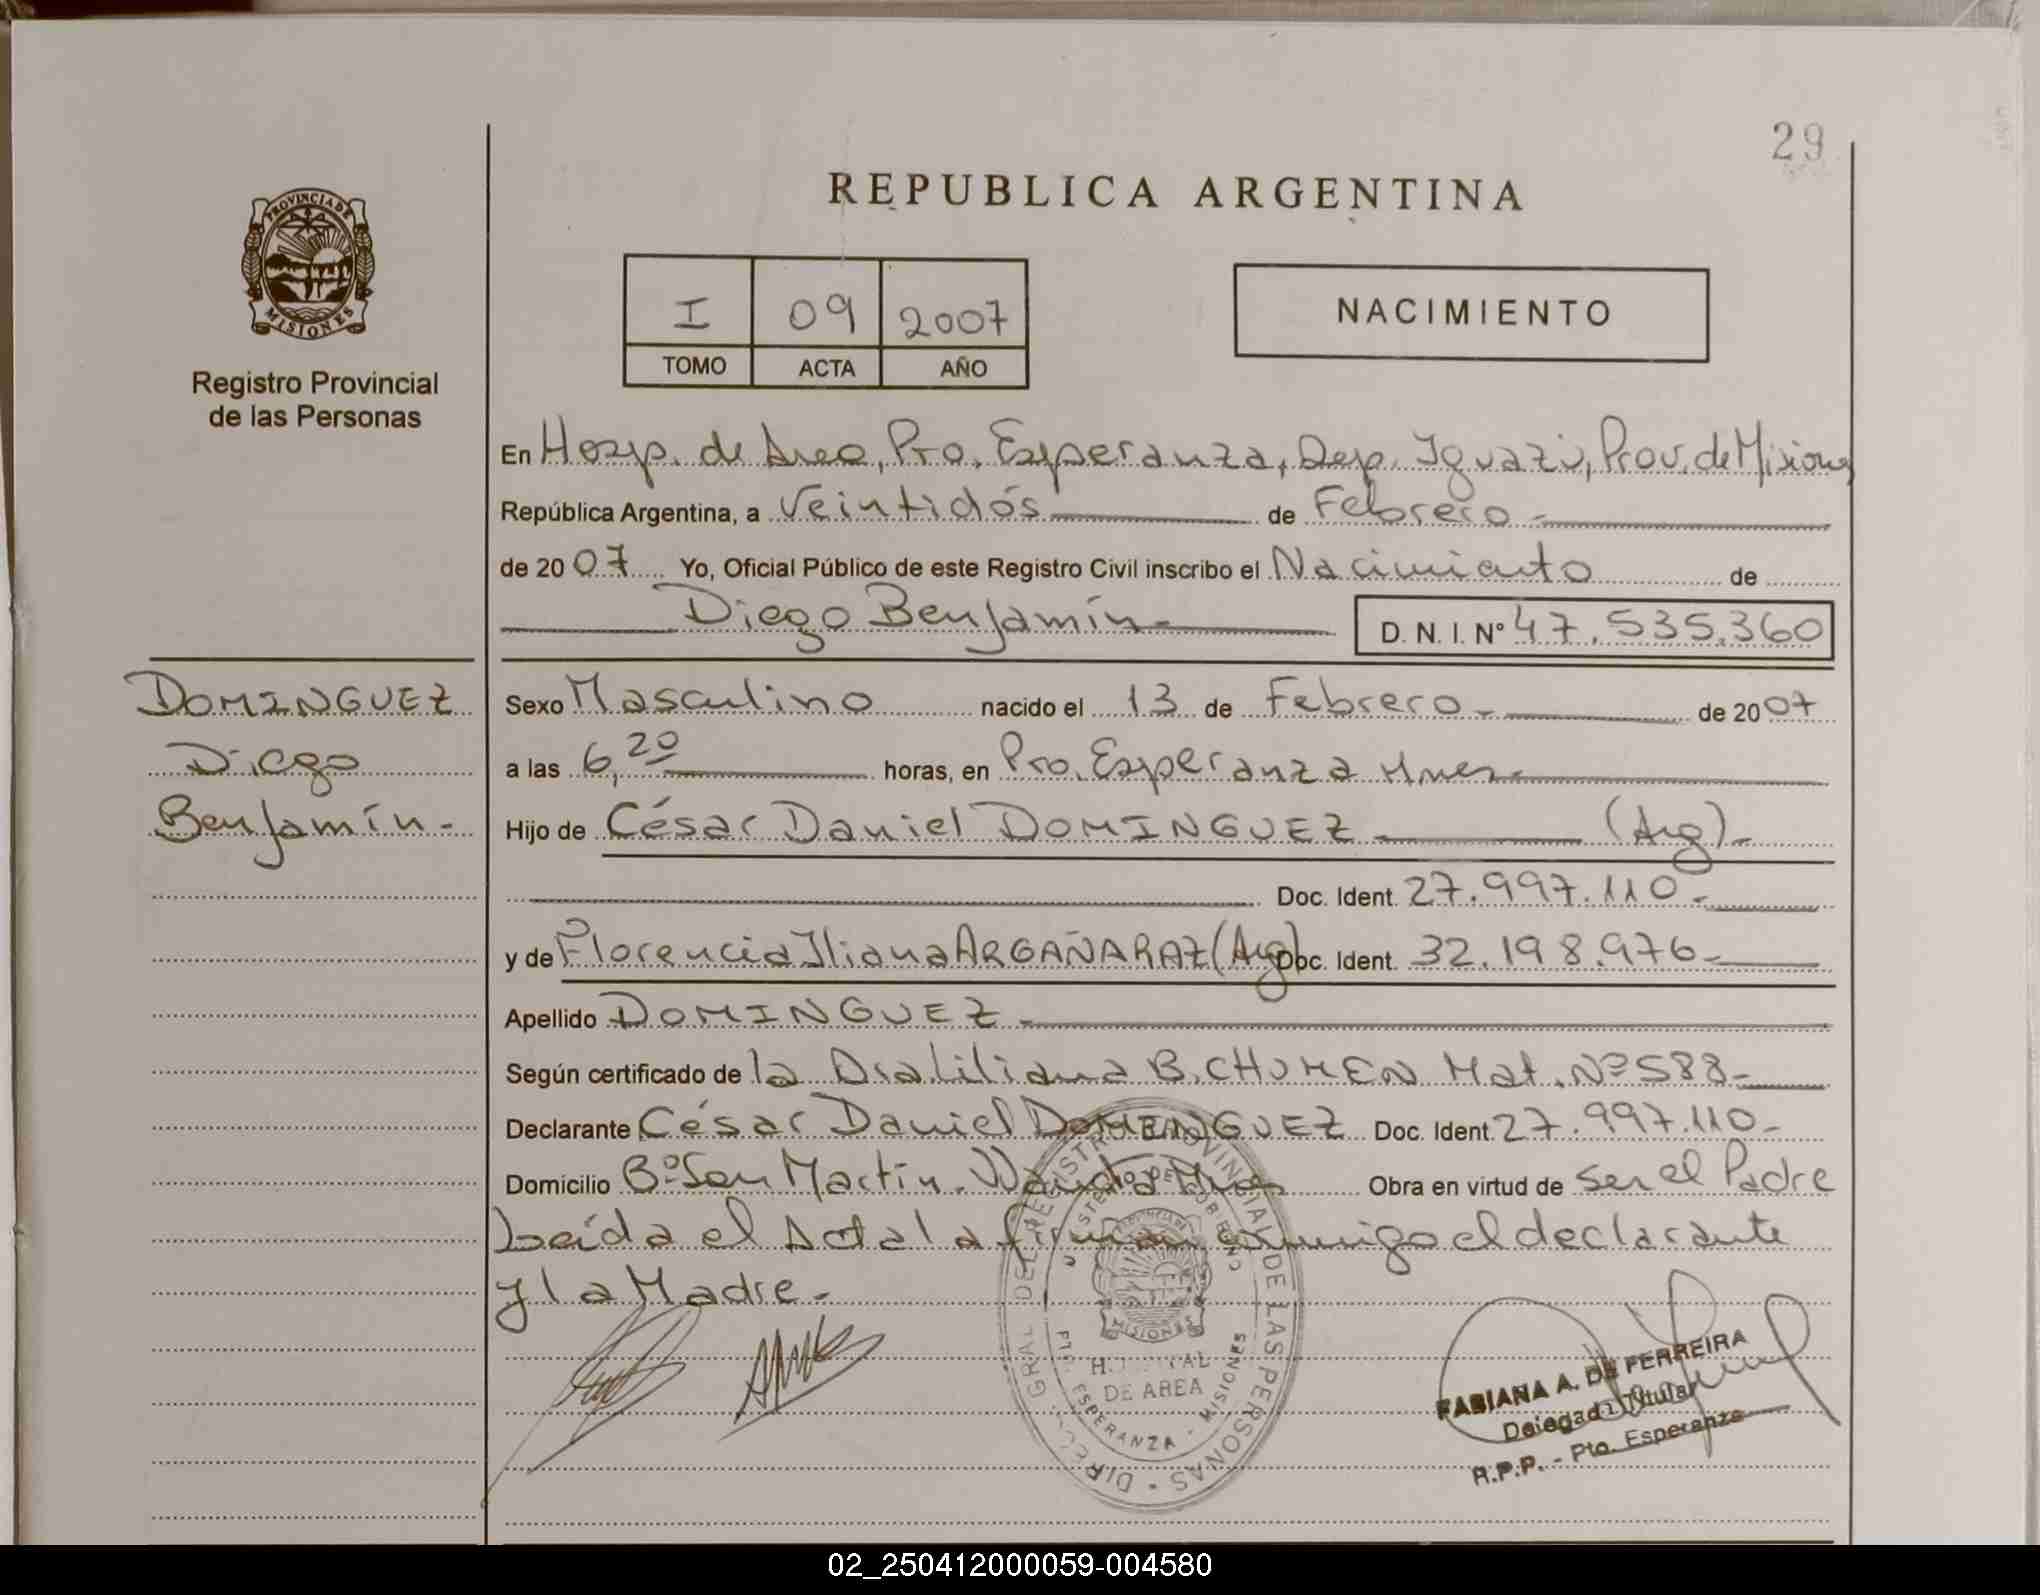 29
REPUBLICA ARGENTINA
PROVINCIA DE
MISIONES
Registro Provincial
de las Personas
I 09 2007
TOMO ACTA AÑO
NACIMIENTO
En Hosp. de Area, Pto. Esperanza, Dep. Iguazú, Prov. de Misiones
República Argentina, a Veintidós de Febrero
de 2007 Yo, Oficial Público de este Registro Civil inscribo el Nacimiento de
Diego Benjamín D. N. I. N° 47.535.360
DOMINGUEZ
Diego
Benjamín.-
Sexo Masculino nacido el 13 de Febrero de 2007
a las 6,20 horas, en Pto. Esperanza Mnes
Hijo de César Daniel DOMINGUEZ (Arg)
Doc. Ident. 27.997.110
y de Florencia Iliana ARGAÑARAZ (Arg) Doc. Ident. 32.198.976
Apellido DOMINGUEZ
Según certificado de la Dra. Liliana B. CHUMEN Mat. Nº 588
Declarante César Daniel DOMINGUEZ Doc. Ident. 27.997.110
Domicilio Bº San Martín. Wanda Mnes Obra en virtud de ser el Padre
Leída el Acta la firman conmigo el declarante
y la Madre.-
DIREC. GRAL. DEL REGISTRO PROVINCIAL DE LAS PERSONAS
MINISTERIO DE GOBIERNO
PROVINCIA DE
MISIONES
HOSPITAL
DE AREA
PTO. ESPERANZA - MISIONES
FABIANA A. DE FERREIRA
Delegada Titular
R.P.P. - Pto. Esperanza
02_250412000059-004580